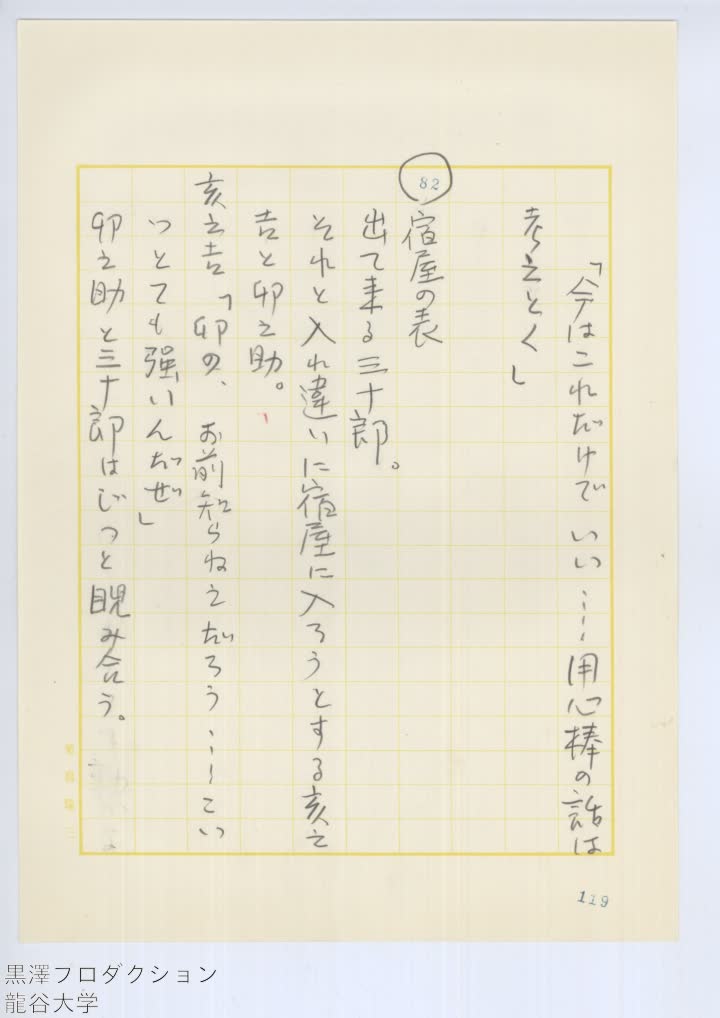 「今はこれだけでいい……用心棒の話は
考えとく」
82
宿屋の表
出て来る三十郎。
それと入れ違いに宿屋に入ろうとする亥之
吉と卯之助。
亥之吉「卯の、お前知らねえだろう……こい
つとても強いんだぜ」
卯之助と三十郎はじっと睨み合う。
119
黒澤フロダクション
龍谷大学